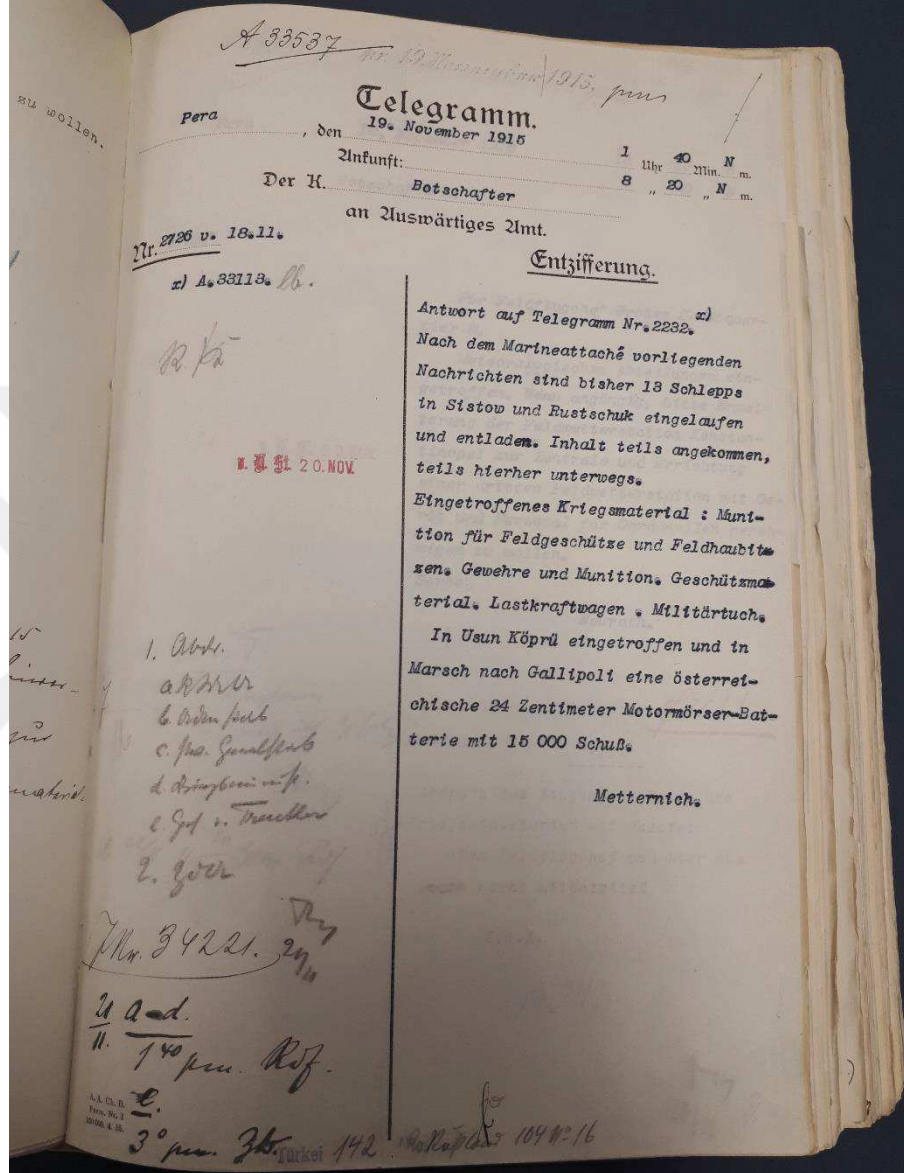 zu wollen.
A 33537
pr. 19. November 1915. pm
Telegramm.
Pera, den 19. November 1915 1 Uhr 40 Min. N m.
Ankunft: 8 „ 20 „ N m.
Der K. Botschafter
an Auswärtiges Amt.
Nr. 2726 v. 18.11.
Entzifferung.
x) A.33113.
Antwort auf Telegramm Nr.2232. x)
Nach dem Marineattaché vorliegenden
Nachrichten sind bisher 13 Schlepps
in Sistow und Rustschuk eingelaufen
und entladen. Inhalt teils angekommen,
teils hierher unterwegs.
Eingetroffenes Kriegsmaterial : Muni-
tion für Feldgeschütze und Feldhaubit-
zen. Gewehre und Munition. Geschützma-
terial. Lastkraftwagen . Militärtuch.
In Usun Köprü eingetroffen und in
Marsch nach Gallipoli eine österrei-
chische 24 Zentimeter Motormörser-Bat-
terie mit 15 000 Schuß.
Metternich.
20. NOV.
1. Abdr.
2.
JNr. 34221.
21/11. a-d.
1 40 pm.
e.
3 0 pm.
A.A. Ch. B.
Form. Nr. 1
Türkei 142
104 No 16